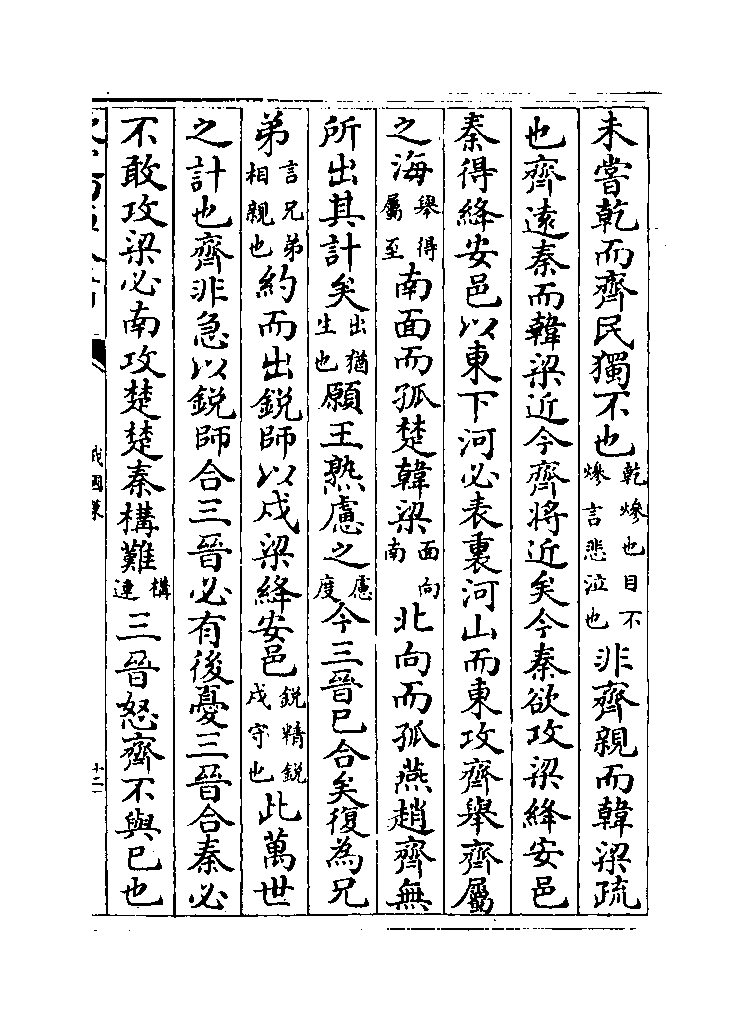 未嘗乾而齊民獨不也乾㷮也目不㷮言悲泣也非齊親而韓梁疏
也齊逺秦而韓梁近今齊將近矣今秦欲攻梁絳安邑
秦得絳安邑以東下河必表裏河山而東攻齊舉齊屬
之海舉得屬至南面而孤楚韓梁面向南北向而孤燕趙齊無
所出其計矣出猶生也願王熟慮之慮度今三晉已合矣復為兄
弟言兄弟相親也約而出鋭師以戍梁絳安邑鋭精鋭戍守也此萬世
之計也齊非急以鋭師合三晉必有後憂三晉合秦必
不敢攻梁必南攻楚楚秦構難構連三晉怒齊不與已也
戰國策
十二